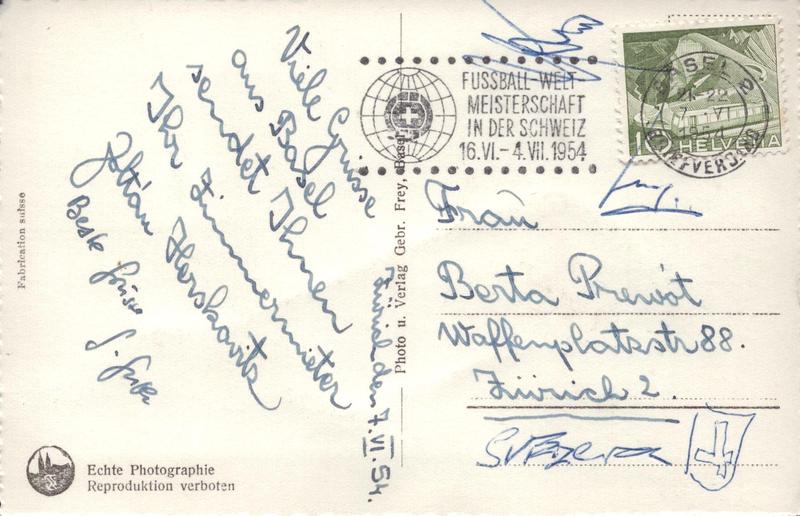 Viele Grüsse
aus Basel
sendet Ihnen
Ihr Zimmermieter
Zoltán Herskovits
Beste Grüsse
Zürich den 7.VI.54.
Fabrication suisse
Echte Photographie
Reproduktion verboten
Photo u. Verlag Gebr. Frey, Basel
FUSSBALL-WELT-
MEISTERSCHAFT
IN DER SCHWEIZ
16.VI.-4.VII.1954
BASEL 2
22
7. VI
1954
BRIEFVERSAND
10 HELVETIA
Frau
Berta Prewót
Waffenplatzstr 88.
Zürich 2.